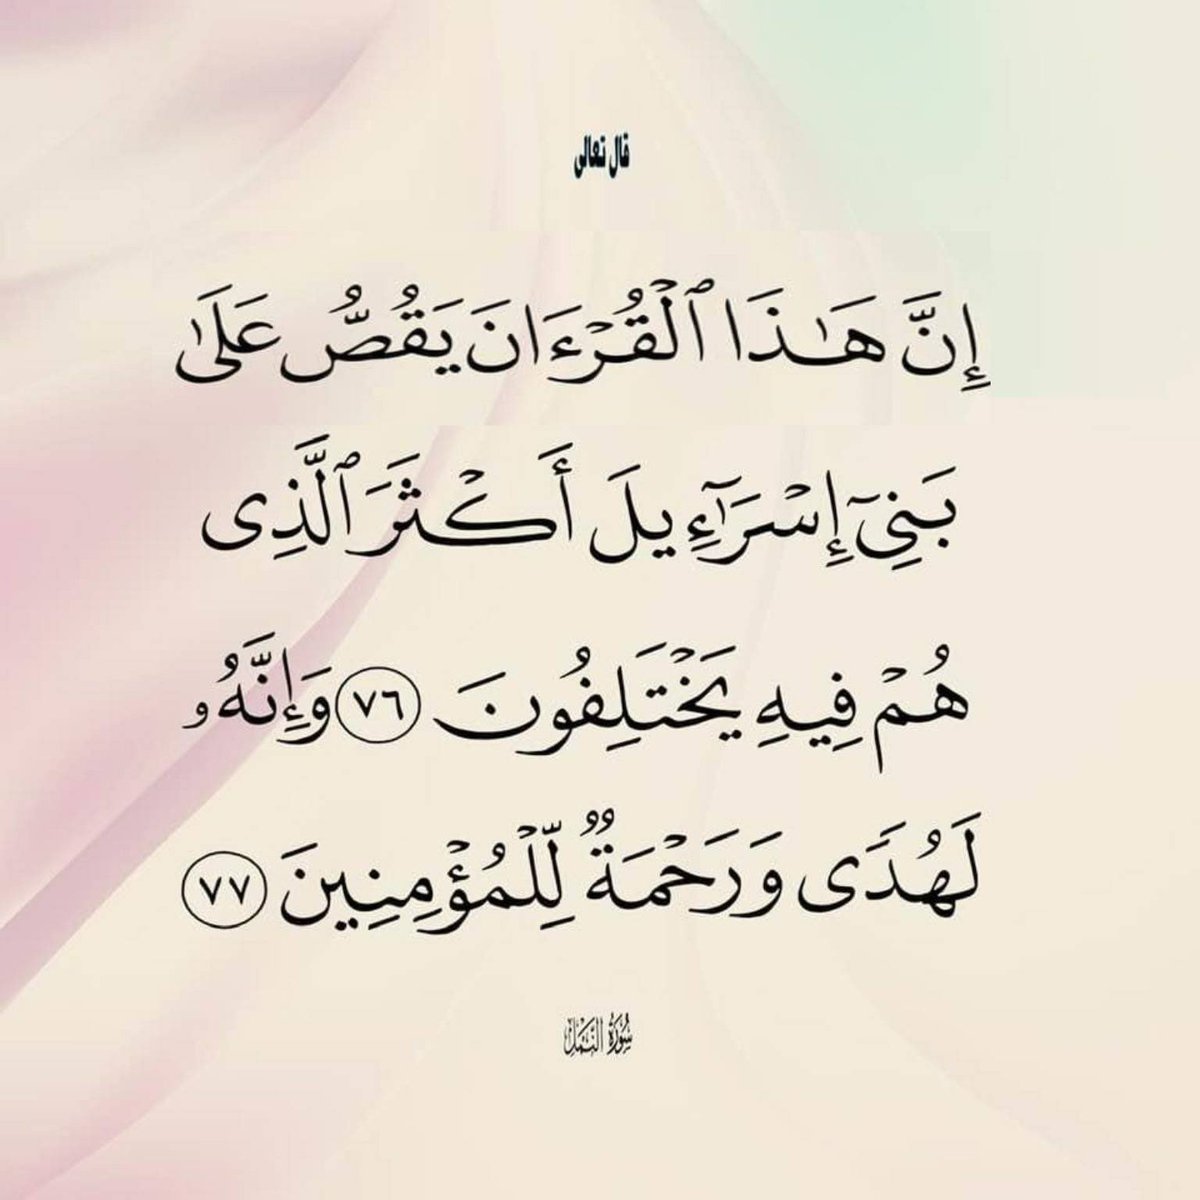 قال تعالى
إِنَّ هَـٰذَا ٱلْقُرْءَانَ يَقُصُّ عَلَىٰ
بَنِىٓ إِسْرَٰٓءِيلَ أَكْثَرَ ٱلَّذِى
هُمْ فِيهِ يَخْتَلِفُونَ ٧٦ وَإِنَّهُۥ
لَهُدًى وَرَحْمَةٌ لِّلْمُؤْمِنِينَ ٧٧
سُورَةُ النَّمْلِ